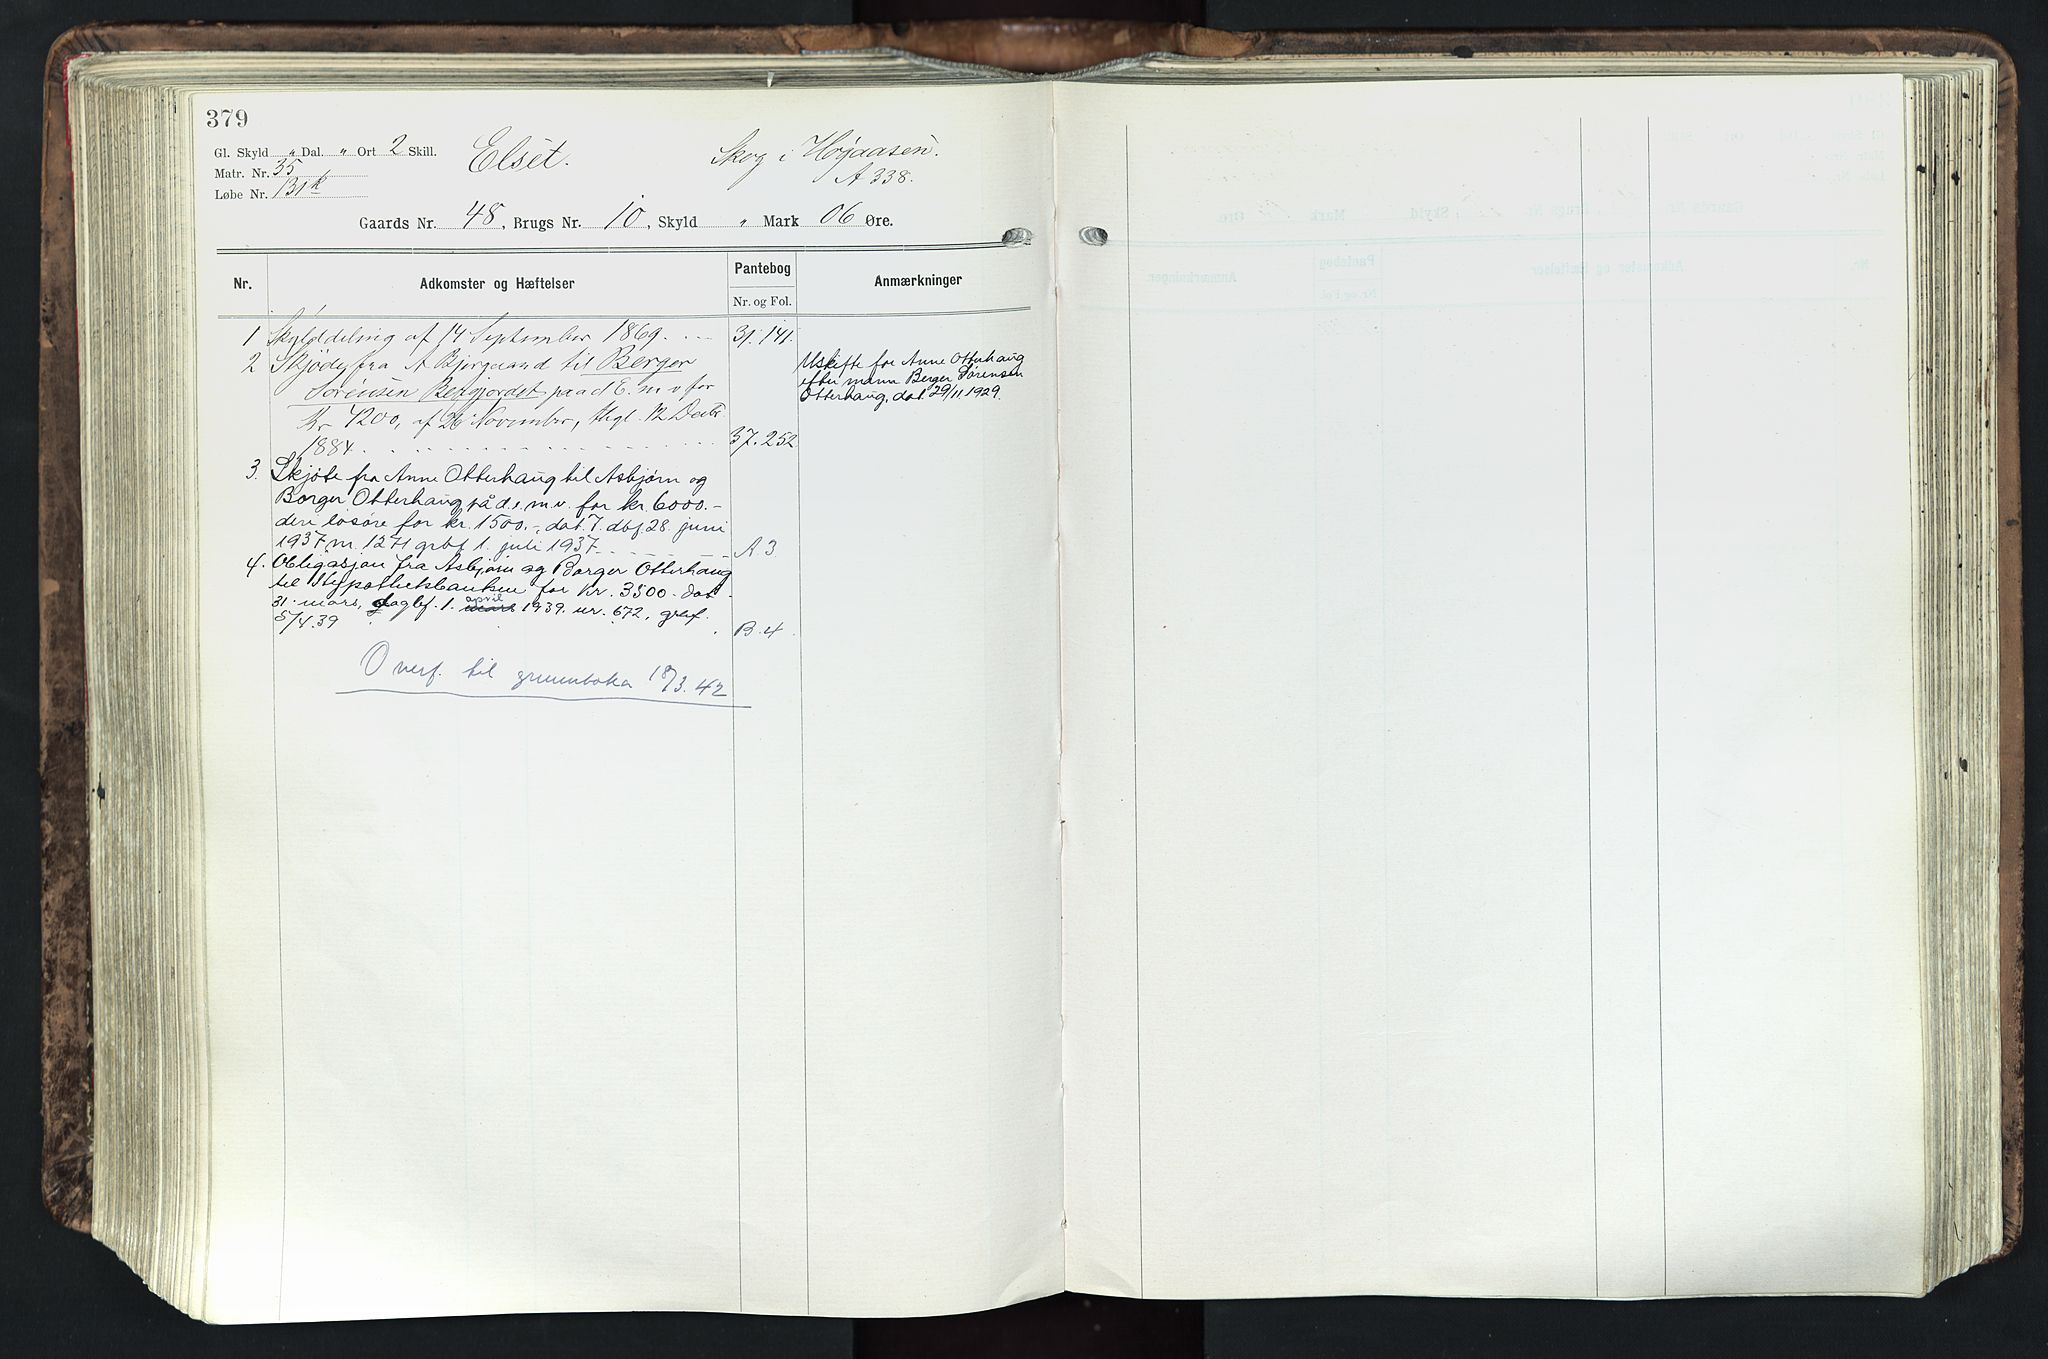 379
Gl. Skyld " Dal. " Ort 2 Skill. Elset. Skog i Højaasen.
Matr. Nr. 35 A 338.
Løbe Nr. 131k
Gaards Nr. 48, Brugs Nr. 10, Skyld " Mark 06 Øre.
Nr. Adkomster og Hæftelser Pantebog Nr. og Fol. Anmærkninger
1 Skylddeling af 14 September 1869. 31.141.
2 Skjøde fra A Bjørgaand til Berger
Sørensen Bergjordet paa d E. m v for
Kr 4200, af 26 November, thgl. 12 Decbr
1884. 37.252
Uskifte for Anne Otterhaug
efter mann Berger Sørensen
Otterhaug, dat. 29/11 1929.
3. Skjøte fra Anne Otterhaug til Asbjørn og
Borger Otterhaug på d. e. m. v. for kr. 6000.-
deri løsøre for kr. 1500.-, dat. 7. dbf. 28. juni
1937, nr. 1271 grbf 1. juli 1937 A. 3
4. Obligasjon fra Asbjørn og Borger Otterhaug
til Hypothekbanken for kr. 3500.- dat.
31. mars, dagbf. 1. april 1939. nr. 672, grbf.
5/4.39 B. 4
Overf. til grunnboka 18/3.42